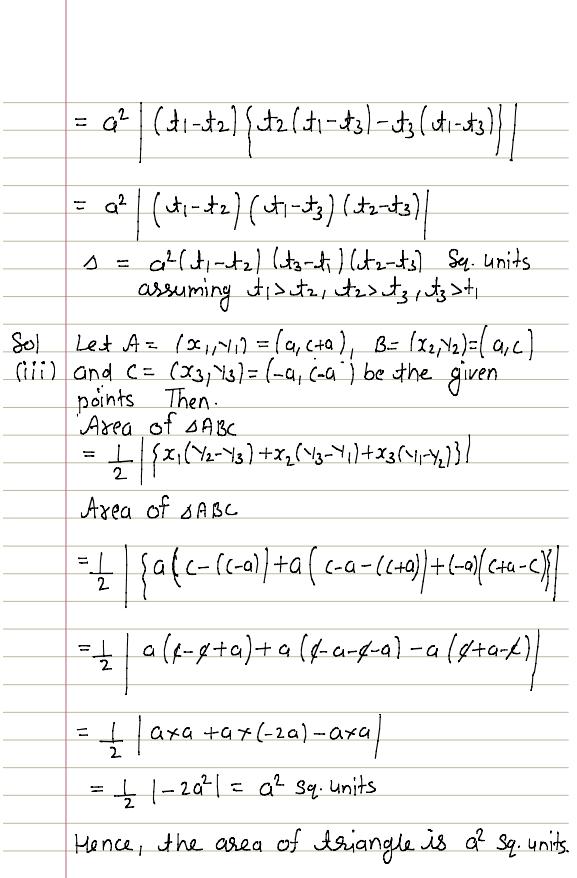 = a² |(t₁-t₂){t₂(t₁-t₃)-t₃(t₁-t₃)}|
= a² |(t₁-t₂)(t₁-t₃)(t₂-t₃)|
Δ = a²(t₁-t₂)(t₃-t₁)(t₂-t₃) Sq. units
assuming t₁>t₂, t₂>t₃, t₃>t₁
Sol Let A = (x₁,y₁) = (a, c+a), B= (x₂,y₂)=(a,c)
(iii) and C = (x₃,y₃)=(-a, c-a) be the given
points Then.
Area of ΔABC
= 1/2 |{x₁(y₂-y₃)+x₂(y₃-y₁)+x₃(y₁-y₂)}|
Area of ΔABC
= 1/2 |{a(c-(c-a))+a(c-a-(c+a))+(-a)(c+a-c)}|
= 1/2 |a(c-c+a)+a(c-a-c-a)-a(c+a-c)|
= 1/2 |a×a +a×(-2a)-a×a|
= 1/2 |-2a²| = a² sq. units
Hence, the area of triangle is a² sq. units.